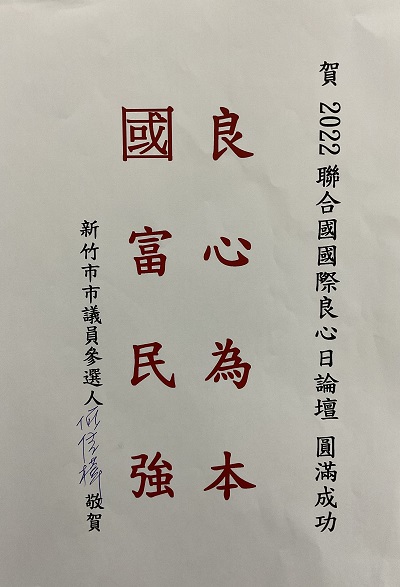 賀 2022 聯合國國際良心日論壇 圓滿成功
良心為本
國富民強
新竹市市議員參選人 敬賀